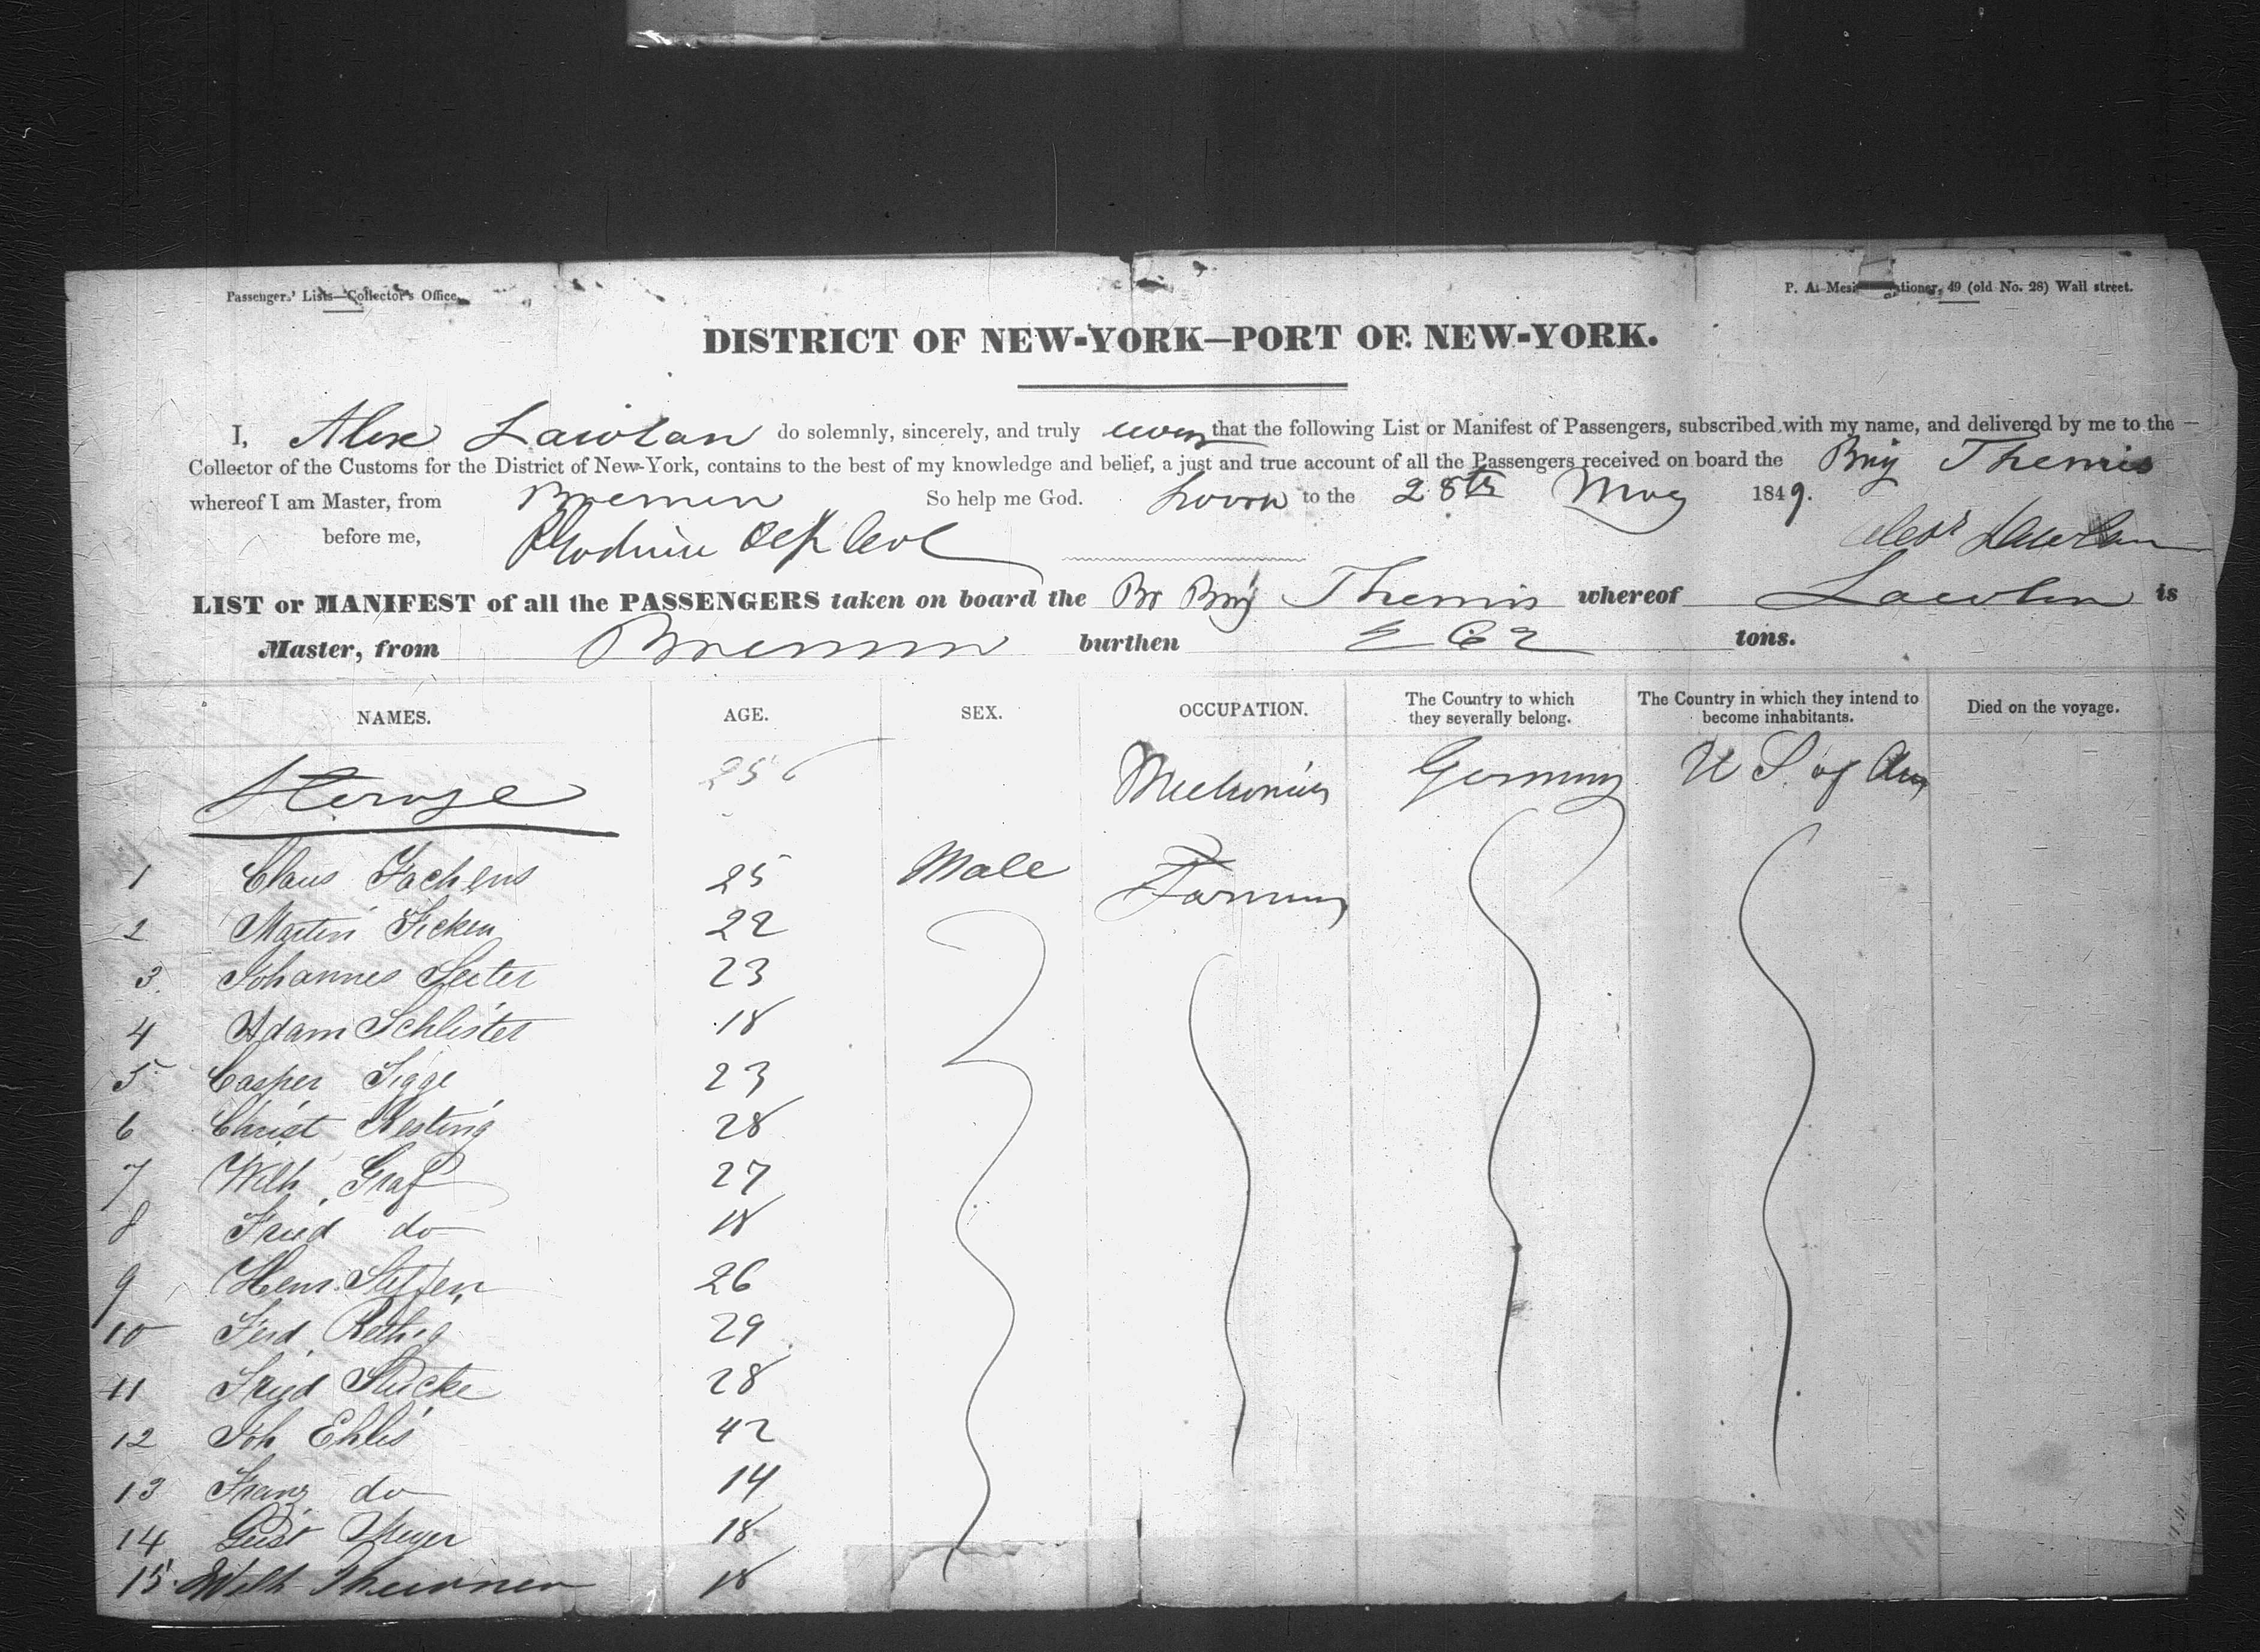 Passengers' Lists—Collector's Office.
P. A. Mesi ationer, 49 (old No. 28) Wall street.
DISTRICT OF NEW-YORK—PORT OF NEW-YORK.
I, Alex Lawlan do solemnly, sincerely, and truly that the following List or Manifest of Passengers, subscribed with my name, and delivered by me to the
Collector of the Customs for the District of New-York, contains to the best of my knowledge and belief, a just and true account of all the Passengers received on board the Brig Themis
whereof I am Master, from Bremen So help me God. Sworn to the 28th May 1849.
before me,
LIST or MANIFEST of all the PASSENGERS taken on board the Br Brig Themis whereof Lawlan is
Master, from Bremen burthen tons.
NAMES. AGE. SEX. OCCUPATION. The Country to which they severally belong. The Country in which they intend to become inhabitants. Died on the voyage.
Mechanics Germany U S of Am
1 Claus Fachens 25 Male Farmers
2 Martin Ficken 22
3. Johannes 23
4 Adam Schlister 18
5 Casper Sigge 23
6 Christ Kesting 28
7 Wilh. Graf 27
8 Fried do 18
9 Henr. Steffen 26
10 Ferd. Rethig 29
11 Fried Stücke 28
12 Joh Ehlis 42
13 Franz do 14
14 Gust Meyer 18
15 Wilh 18